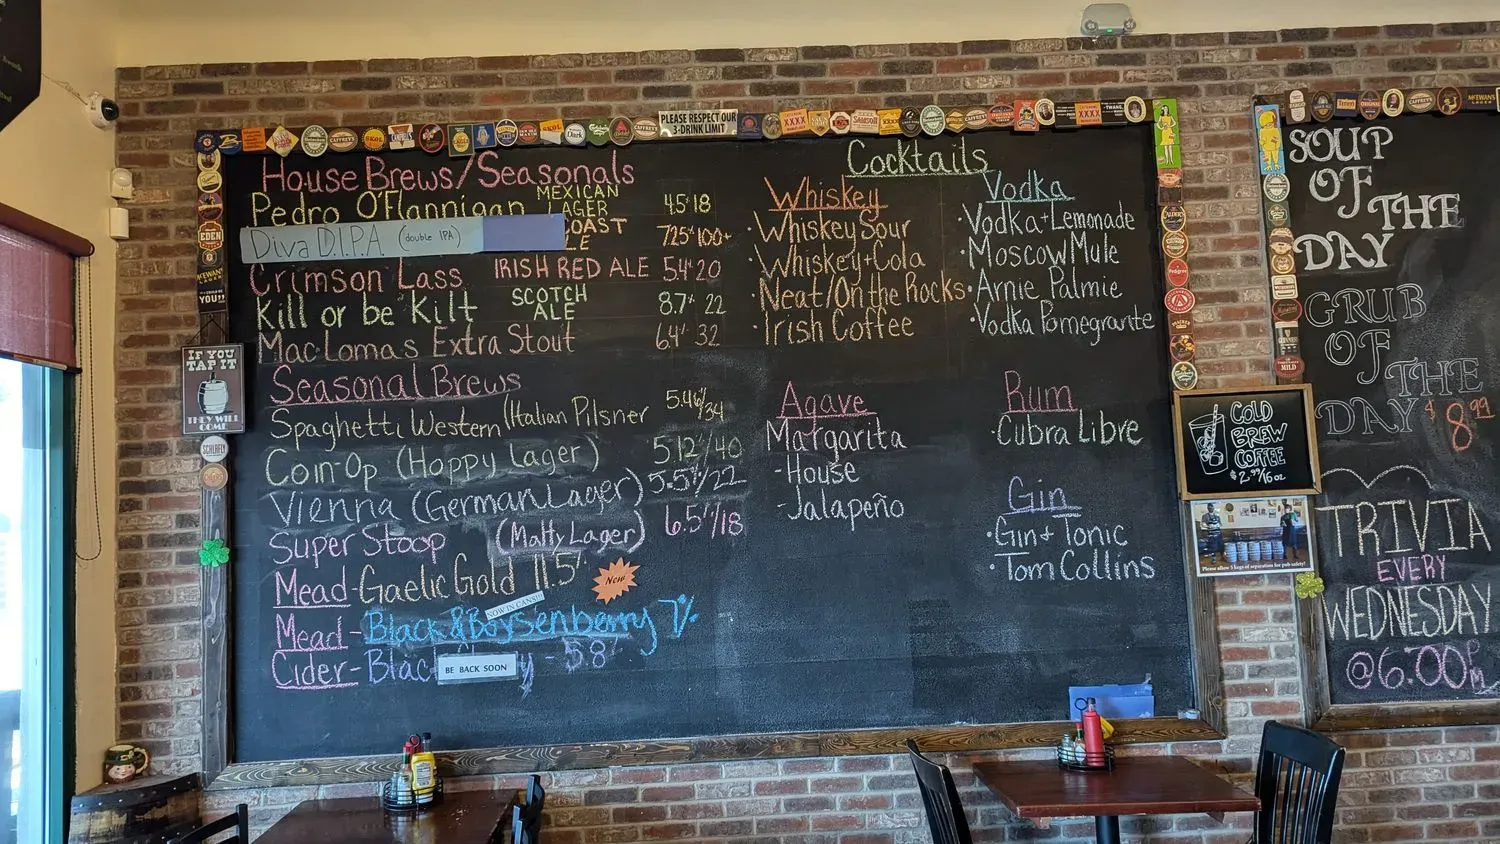 PLEASE RESPECT OUR
3-DRINK LIMIT
House Brews/Seasonals
Pedro O'Flannigan MEXICAN LAGER 4.5% 18
Diva D.I.P.A (double IPA)
COAST
7.25% 100+
Crimson Lass IRISH RED ALE 5.4% 20
Kill or be Kilt SCOTCH ALE 8.7% 22
MacLomas Extra Stout 6.4% 32
Seasonal Brews
Spaghetti Western (Italian Pilsner 5.4%/34
Coin-Op (Hoppy Lager) 5.12%/40
Vienna (German Lager) 5.5%/22
Super Stoop (Malty Lager) 6.5%/18
Mead-Gaelic Gold 11.5%
New
NOW IN CANS!!!
Mead-Black & Boysenberry 7%
Cider-Blac y - 5.8%
BE BACK SOON
Cocktails
Whiskey
·Whiskey Sour
·Whiskey+Cola
·Neat/On the Rocks
·Irish Coffee
Vodka
·Vodka+Lemonade
·Moscow Mule
·Arnie Palmie
·Vodka Pomegranite
Agave
Margarita
-House
-Jalapeño
Rum
·Cubra Libre
Gin
·Gin+Tonic
·Tom Collins
EDEN
YOU!!
IF YOU
TAP IT
THEY WILL
COME
SCHLAFLY
SOUP
OF
THE
DAY
GRUB
OF
THE
DAY $8.99
COLD
BREW
COFFEE
$2.99/16oz
Please allow 3 kegs of separation for pub safety!
TRIVIA
EVERY
WEDNESDAY
@6:00PM